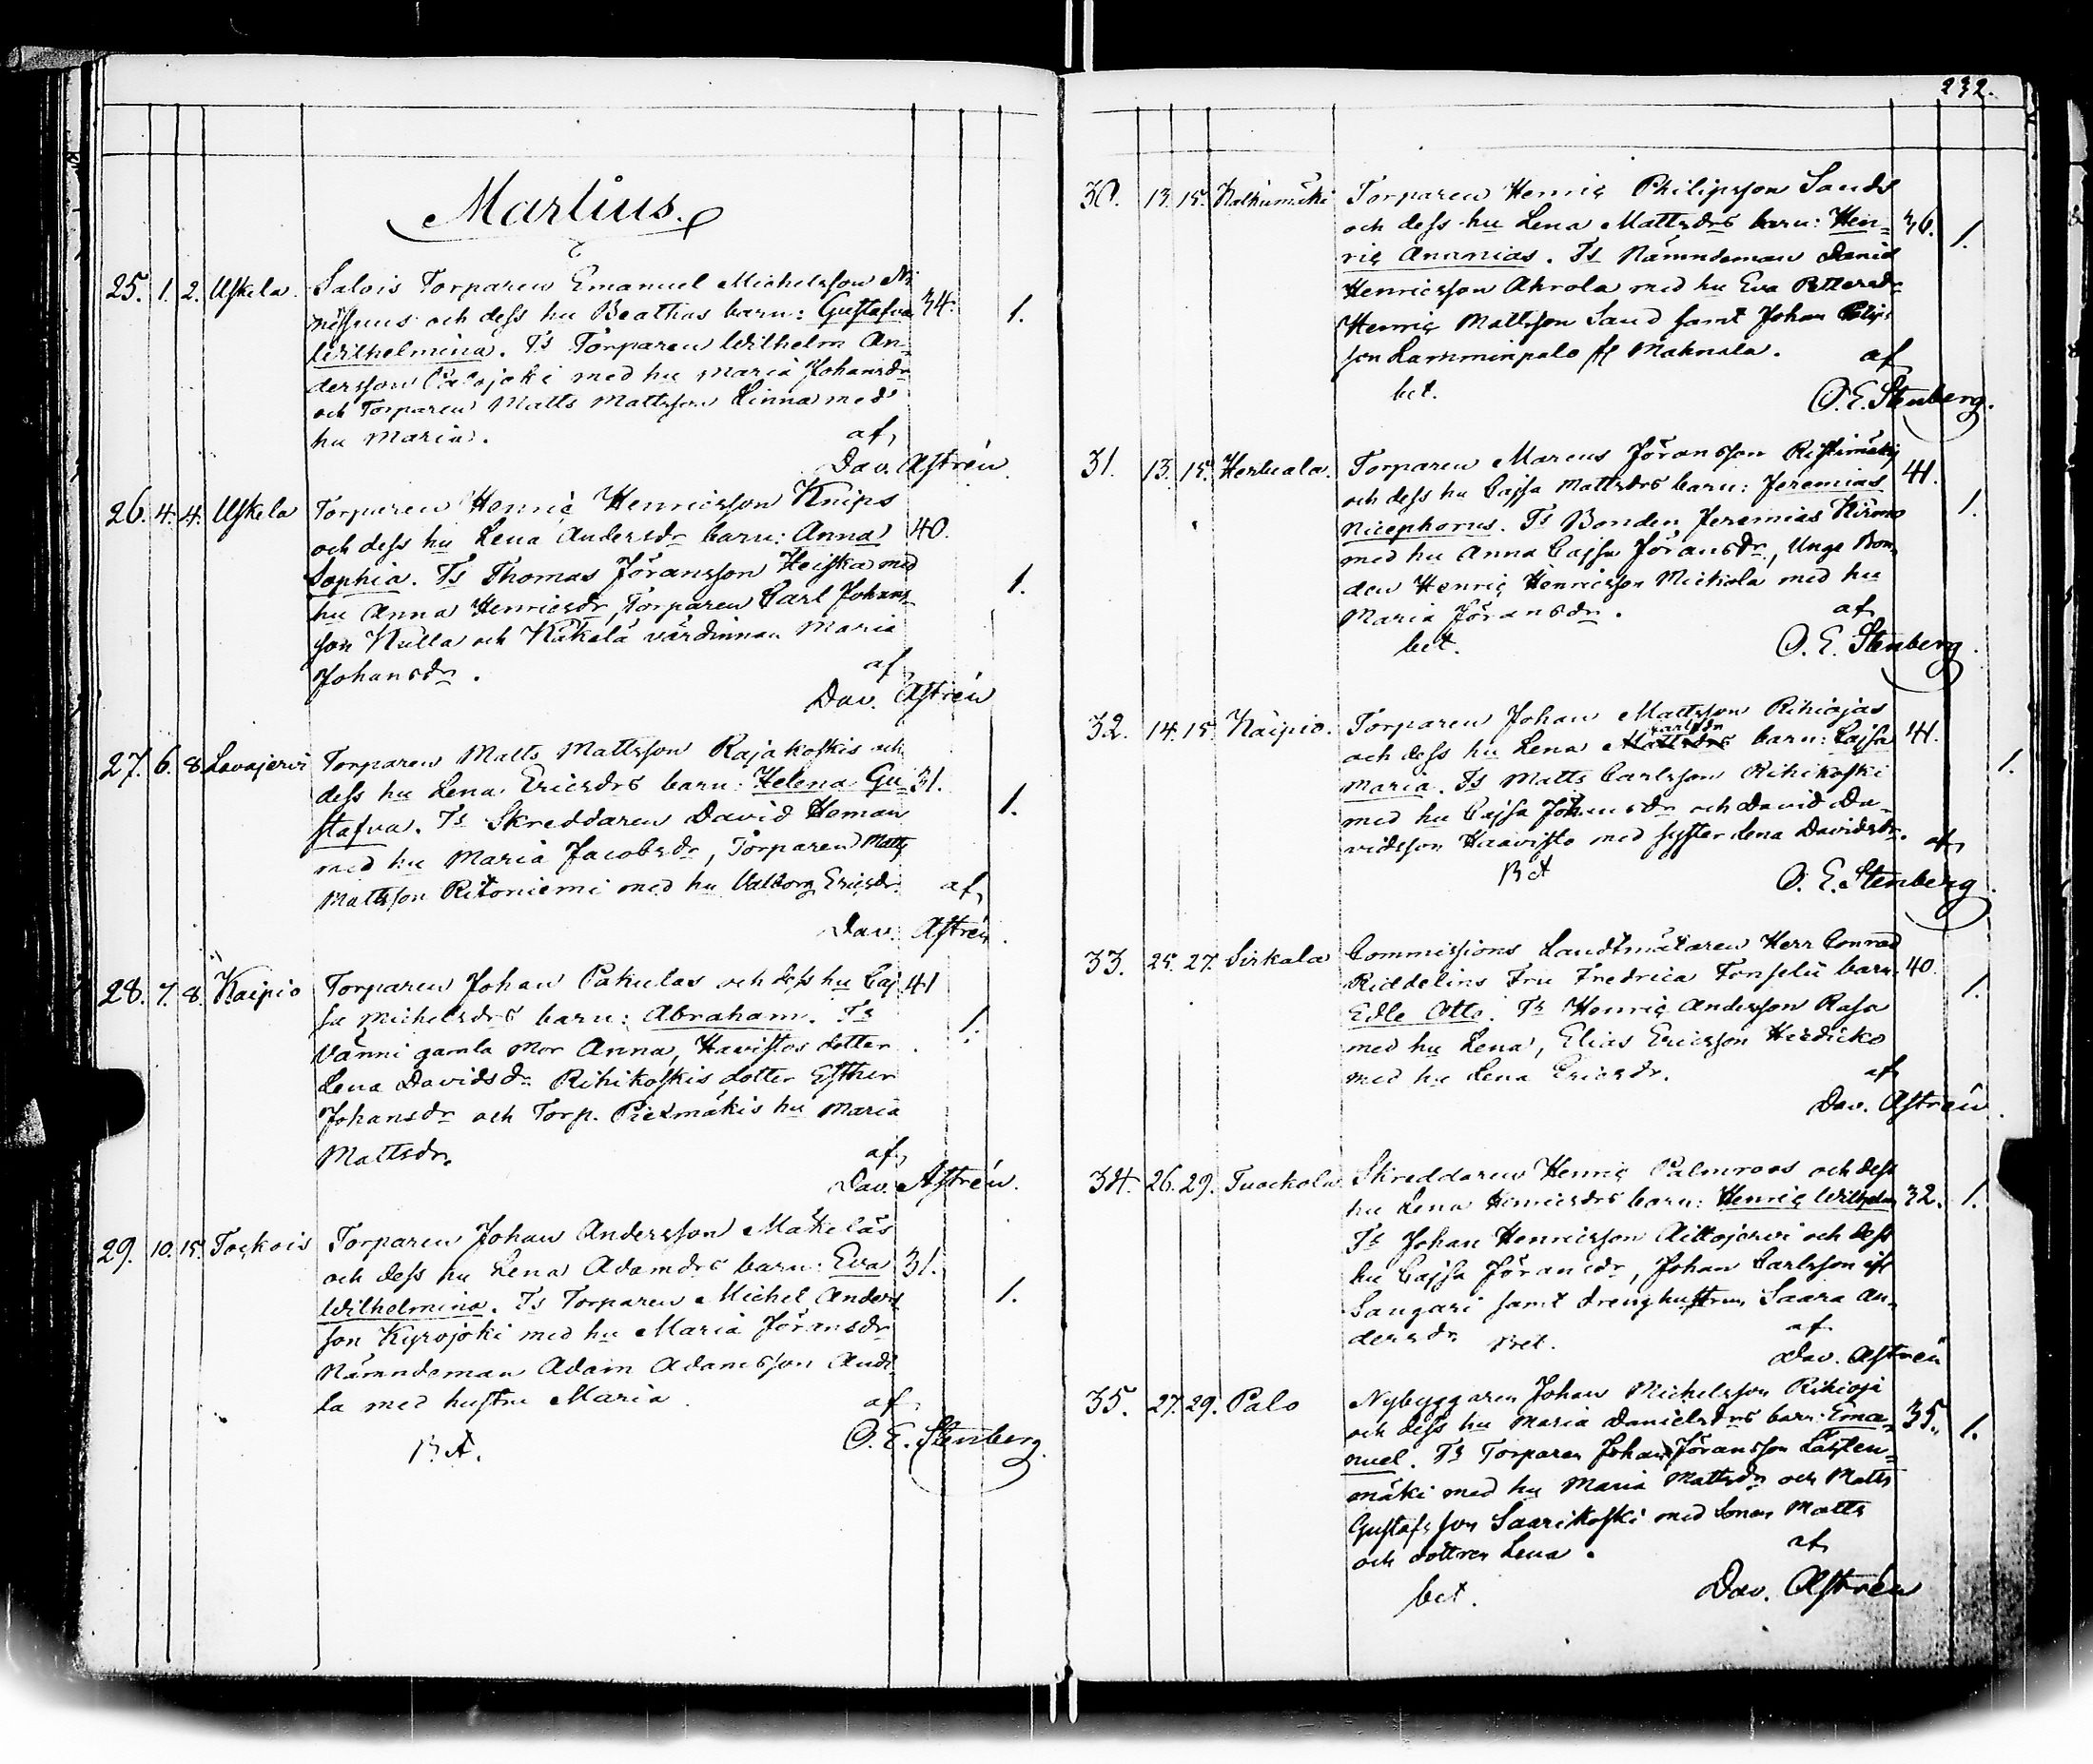 232.
Martius.
25. 1. 2. Uskela. Salois Torparen Emanuel Michelsson
och dess hu Beathas barn: Gustafva 34. 1.
Wilhelmina. Ts Torparen Wilhelm An-
dersson med hu Maria Johansdr
och Torparen Matts Mattsson Linna med
hu Maria. af
Dav. Astrén
26. 4. 4. Uskela Torparen Henric Henricsson Knips
och dess hu Lena Andersdr barn: Anna 40.
Sophia. Ts Thomas Jöransson Heiska med
hu Anna Henricsdr, Torparen Carl Johans- 1.
son Kulla och Käkelä värdinnan Maria
Johansdr. af
Dav. Astrén
27. 6. 8. Lavajervi Torparen Matts Mattsson Rajakoskis och
dess hu Lena Ericsdrs barn: Helena Gu- 31.
stafva. Ts Skreddaren David Homan 1.
med hu Maria Jacobsdr, Torparen Matts
Mattsson Ritoniemi med hu Valborg Ericsdr. af
Dav. Astrén.
28. 7. 8. Kaipio Torparen Johan Pakulas och dess hu Caj 41
sa Michelsdrs barn: Abraham. Ts 1.
Vänni gamla mor Anna, Havistos dotter
Lena Davidsdr Rihikoskis dotter Esther
Johansdr och Torp. Pietmäkis hu Maria
Mattsdr. af
Dav. Astrén.
29. 10. 15. Tockois Torparen Johan Andersson Mäkeläs
och dess hu Lena Adamdrs barn: Eva 31.
Wilhelmina. Ts Torparen Michel Anders 1.
son Kyrojoki med hu Maria Jöransdr
Nämndeman Adam Adamsson Anti-
la med hustru Maria. af
Bet. O. E. Stenberg.
30. 13. 15. Kalkumäki Torparen Henric Philipsson Sands
och dess hu Lena Mattsdrs barn: Hen- 36. 1.
ric Ananias. Ts Nämndeman David
Henricsson Ahrola med hu Eva Pettersdr
Henric Mattsson Sand samt Johan Philips
son Lamminpalo fr Mahnala. af
bet. O. E. Stenberg.
31. 13. 15. Herttuala. Torparen Marcus Jöransson Ristimäkis 41.
och dess hu Cajsa Mattsdrs barn: Jeremias
Nicephorus. Ts Bonden Jeremias Kirmo 1.
med hu Anna Cajsa Jöransdr, Unge Bon-
den Henric Henricsson Mickola med hu
Maria Jöransdr. af
bet. O. E. Stenberg.
32. 14. 15. Kaipio. Torparen Johan Mattsson Rihiojas
Carlsdr
och dess hu Lena Mattsdrs barn: Cajsa 41.
Maria. Ts Matts Carlsson Rihikoski 1.
med hu Cajsa Johansdr och David Da-
vidsson Haavisto med syster Lena Davidsdr. af
Bet O. E. Stenberg.
33. 25. 27. Sirkala Commissions Landtmätaren Herr Conrad
Riddelins Fru Fredrica Forselii barn 40.
Edle Otto. Ts Henric Andersson Rasa 1.
med hu Lena, Elias Ericsson
med hu Lena Ericsdr. af
Dav. Astrén.
34. 26. 29. Tuockola Skreddaren Henric Palmroos och dess
hu Lena Henricsdrs barn: Henric Wilhelm 32. 1.
Ts Johan Henricsson Aittojervi och dess
hu Cajsa Jöransdr, Johan Carlsson
Sangari samt drenghustrun Saara An-
dersdr Bet. af
Dav. Astrén
35. 27. 29. Palo Nybyggaren Johan Michelsson Rihioja
och dess hu Maria Danielsdrs barn: Ema- 35. 1.
nuel. Ts Torparen Johan Jöransson Lähten-
mäki med hu Maria Mattsdr och Matts
Gustafsson Saarikoski med sonen Matts
och dottren Lena. af
bet. Dav. Astrén